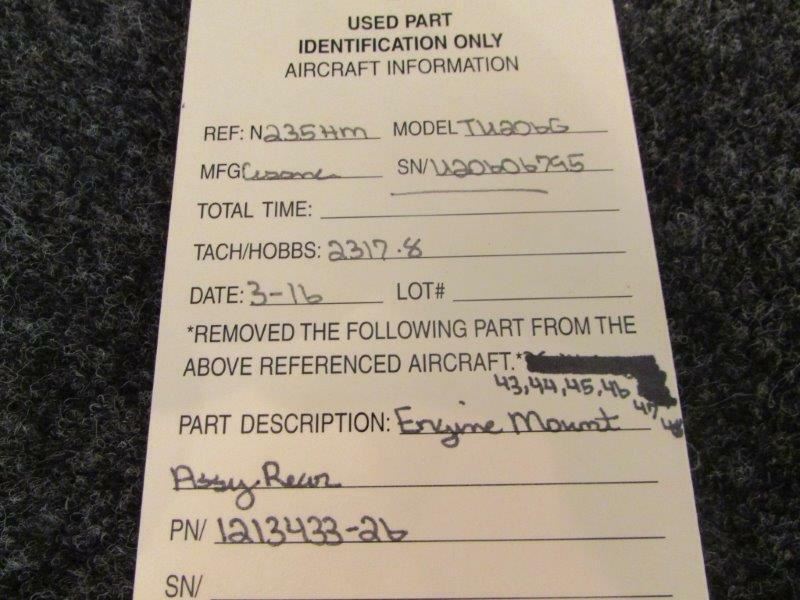 USED PART
IDENTIFICATION ONLY
AIRCRAFT INFORMATION
REF: N235HM MODEL TU206G
MFG Cessna SN/ U20606795
TOTAL TIME:
TACH/HOBBS: 2317.8
DATE: 3-16 LOT#
*REMOVED THE FOLLOWING PART FROM THE
ABOVE REFERENCED AIRCRAFT.*
43,44,45,46
47
48
PART DESCRIPTION: Engine Mount
Assy. Rear
PN/ 1213433-26
SN/